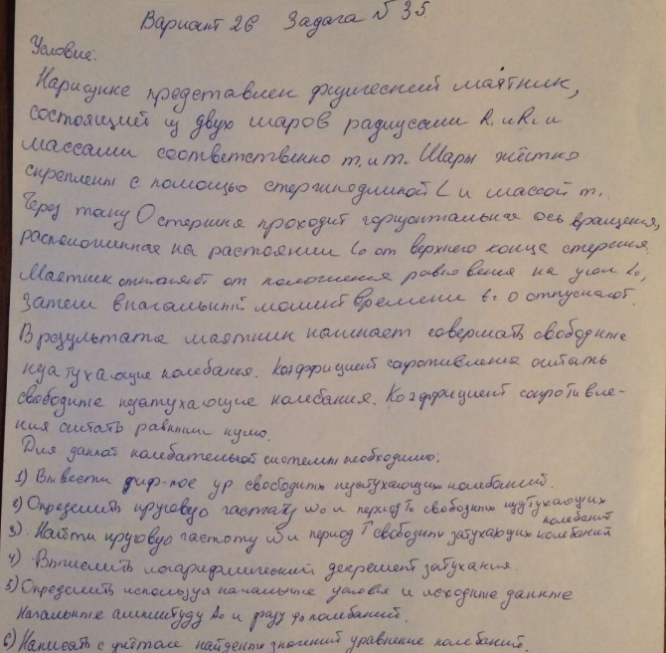 Вариант 26 Задача № 35.
Условие:
На рисунке представлен физический маятник,
состоящий из двух шаров радиусами R₁ и R₂ и
массами соответственно m₁ и m₂. Шары жёстко
скреплены с помощью стержня длиной L и массой m.
Через точку О стержня проходит горизонтальная ось вращения,
расположенная на расстоянии l₀ от верхнего конца стержня.
Маятник отклоняют от положения равновесия на угол
затем в начальный момент времени t=0 отпускают.
В результате маятник начинает совершать свободные
незатухающие колебания. Коэффициент сопротивления считать
свободные незатухающие колебания. Коэффициент сопротивле-
ния считать равным нулю.
Для данной колебательной системы необходимо:
1) Вывести диф-ное ур свободных незатухающих колебаний.
2) Определить круговую частоту ω₀ и период T₀ свободных незатухающих
колебаний
3) Найти круговую частоту ω и период T свободных затухающих колебаний
4) Вычислить логарифмический декремент затухания.
5) Определить используя начальные условия и исходные данные
начальные амплитуду A₀ и фазу колебаний.
6) Написать с учётом найденных значений уравнение колебаний.